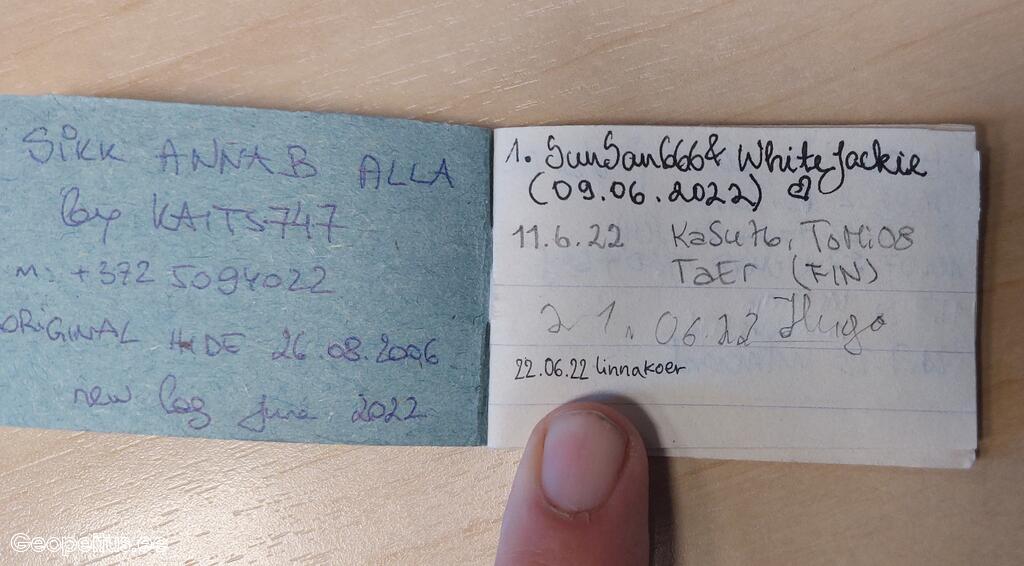 SiKK ANNAB ALLA
by KAITS747
m: +372 5094022
ORiGiNAL HiDE 26.08.2006
new log june 2022
1. SunSan666 & WhiteJackie
(09.06.2022)
11.6.22 KaSu76, ToMi08
TaEr (FIN)
21.06.22 Hugo
22.06.22 linnakoer
Geopeitus.ee